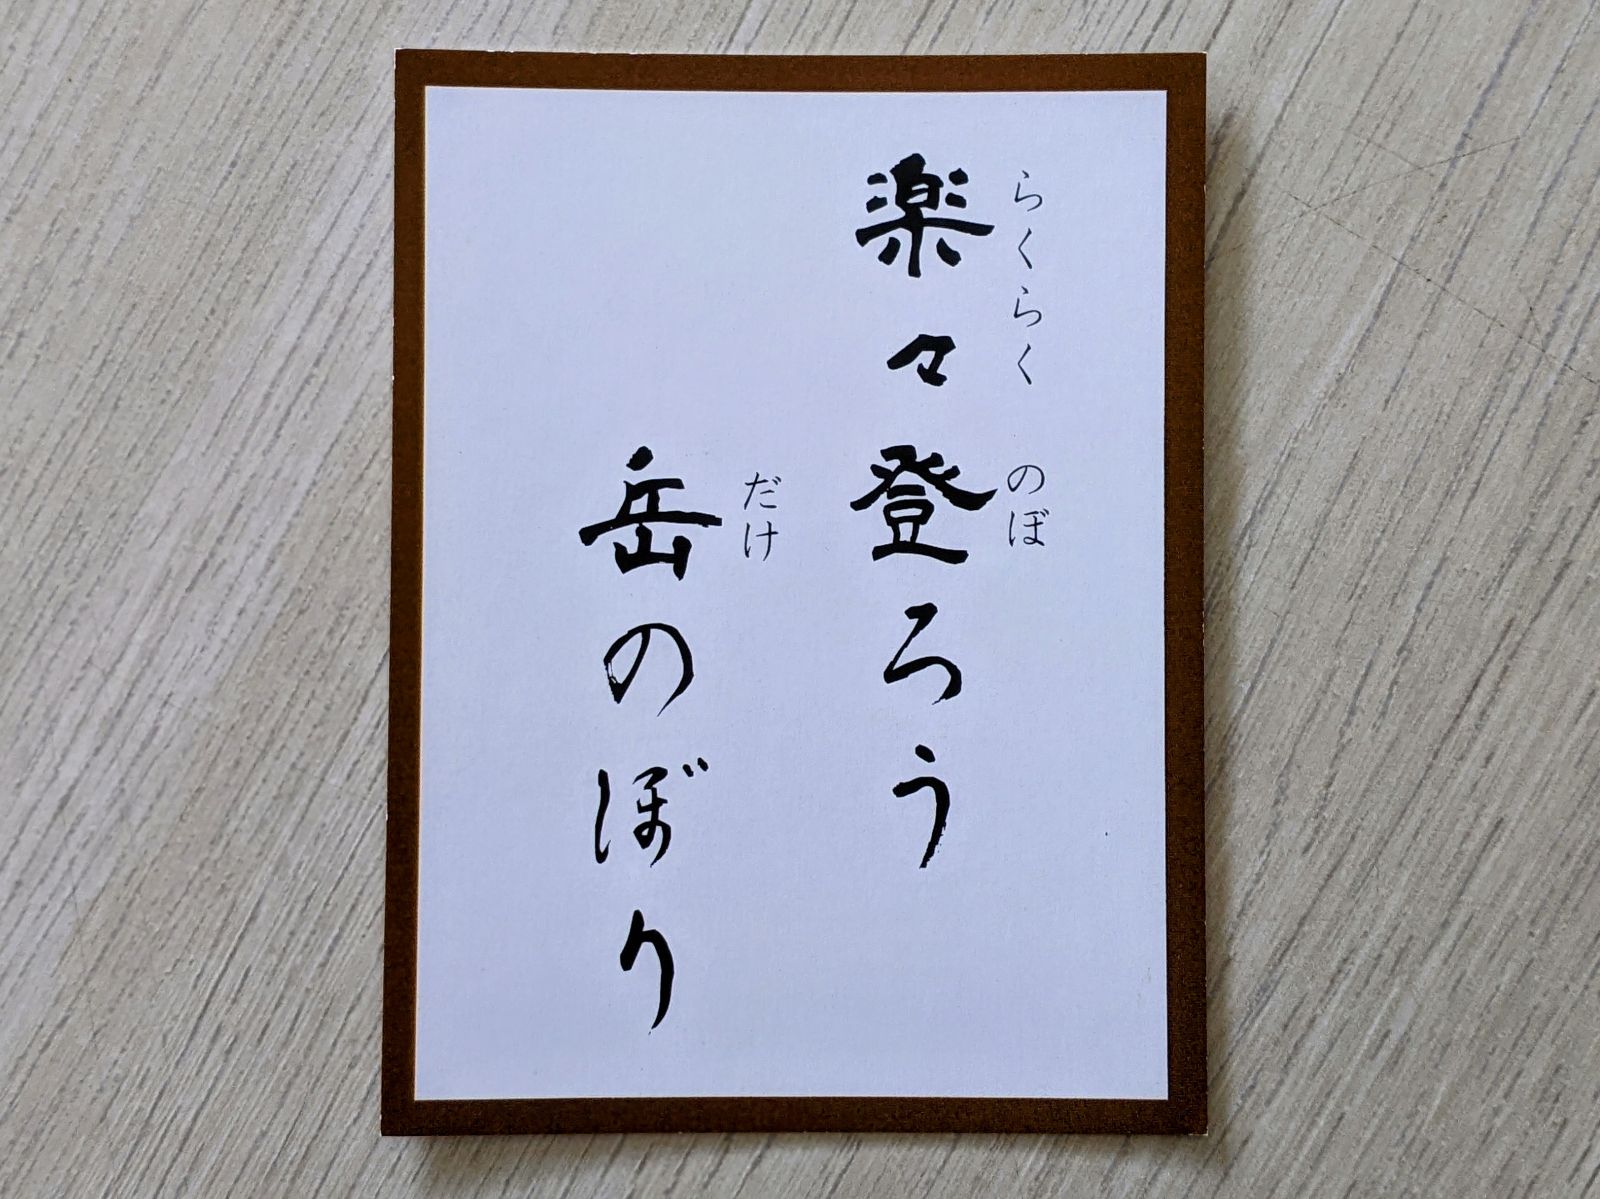 らくらく のぼ
楽々登ろう
だけ
岳のぼり